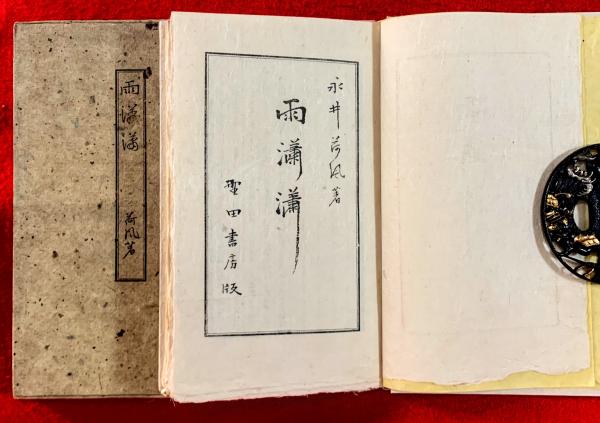 雨瀟瀟 荷風著
永井荷風著
雨瀟瀟
野田書房版